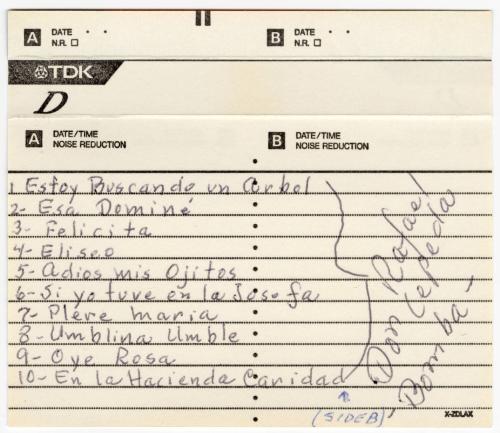 A DATE · ·
N.R. □
B DATE · ·
N.R. □
TDK
D
A DATE/TIME
NOISE REDUCTION
B DATE/TIME
NOISE REDUCTION
1 Estoy Buscando un arbol
2- Esa Dominé
3- Felicita
4- Eliseo
5- Adios mis Ojitos
6- Si yo tuve en la Josefa
7- Plere maria
8- Umblina Umble
9- Oye Rosa
10- En la Hacienda Canidad
Don Rafael
Cepeda
- Bomba -
(SIDE B)
X-ZDLAX